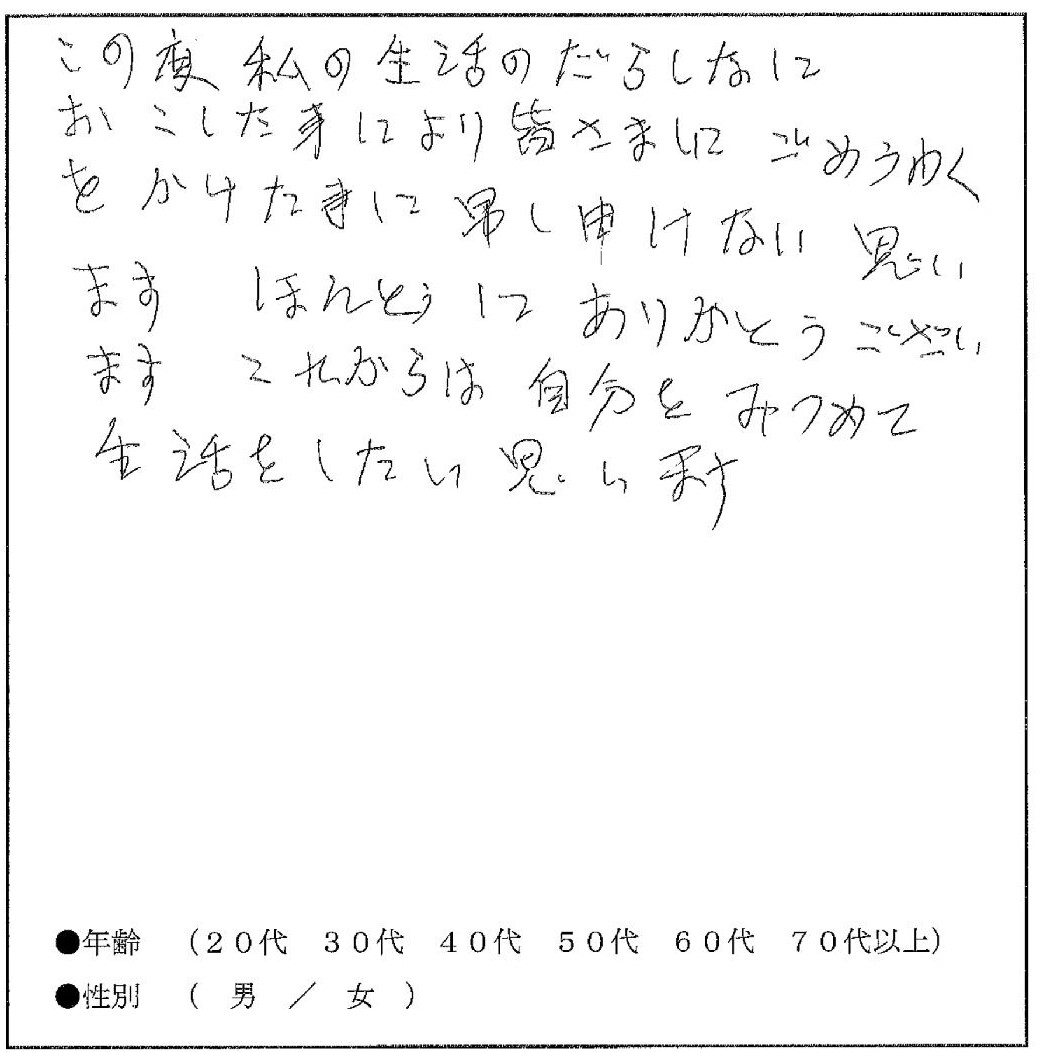 この度 私の生活のだらしなに
おこした事により皆さまにごめうわく
をかけた事に 申し申けない 思い
ます ほんとうに ありがとうござい
ます これからは 自分を みつめて
生活をしたい 思います
●年齢 （２０代 ３０代 ４０代 ５０代 ６０代 ７０代以上）
●性別 （ 男 ／ 女 ）